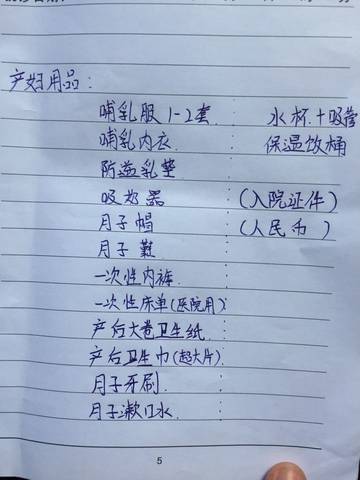 产妇用品：
哺乳服 1-2套 水杯+吸管
哺乳内衣 保温饮桶
防溢乳垫
吸奶器 (入院证件)
月子帽 (人民币)
月子
一次性内裤
一次性床单(医院用)
产后大卷卫生纸
产后卫生巾(超大片)
月子牙刷
月子漱口水
5